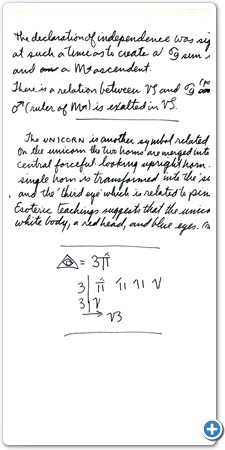 the declaration of independence was sig
at such a time as to create a ♋ sun
and a ♏ ascendent.
There is a relation between ♑ and ♋
♂ (ruler of ♏) is exalted in ♑.
The UNICORN is another symbol related
On the unicorn the two horns are merged into
central forceful looking upright horn.
single horn is transformed into the
and the 'third eye' which is related to pin
Esoteric teachings suggests that the unico
white body, a red head, and blue eyes.
= 3
3
3 V
→ V3